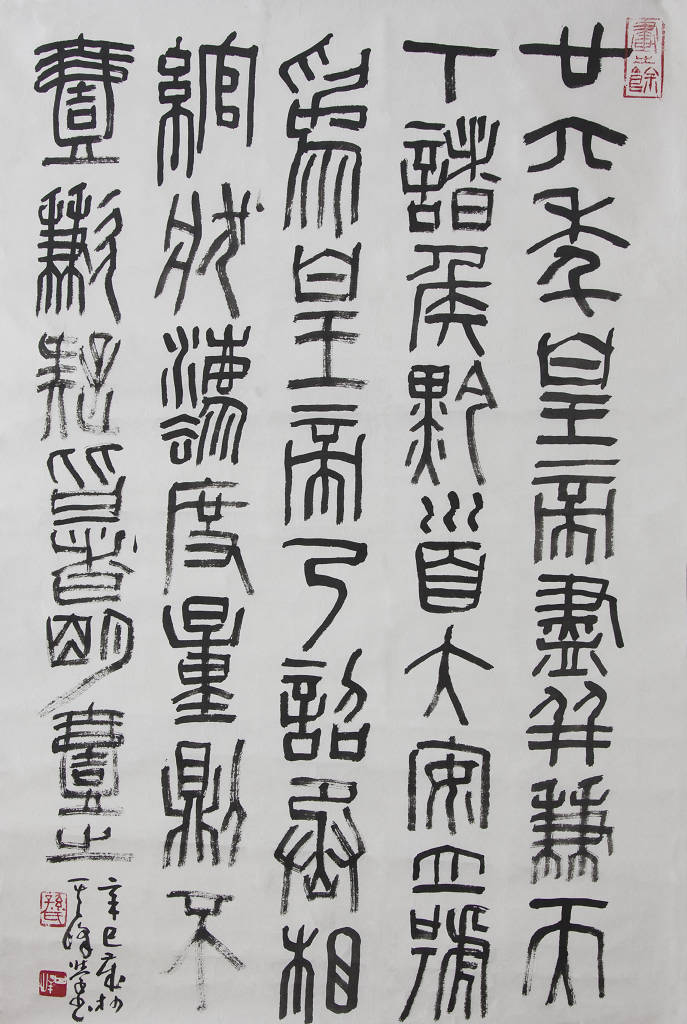 廿六年皇帝盡并兼天
下諸侯黔首大安立號
爲皇帝乃詔丞相
綰狀灋度量則不
壹歉疑皆者明壹之
辛巳
峰書